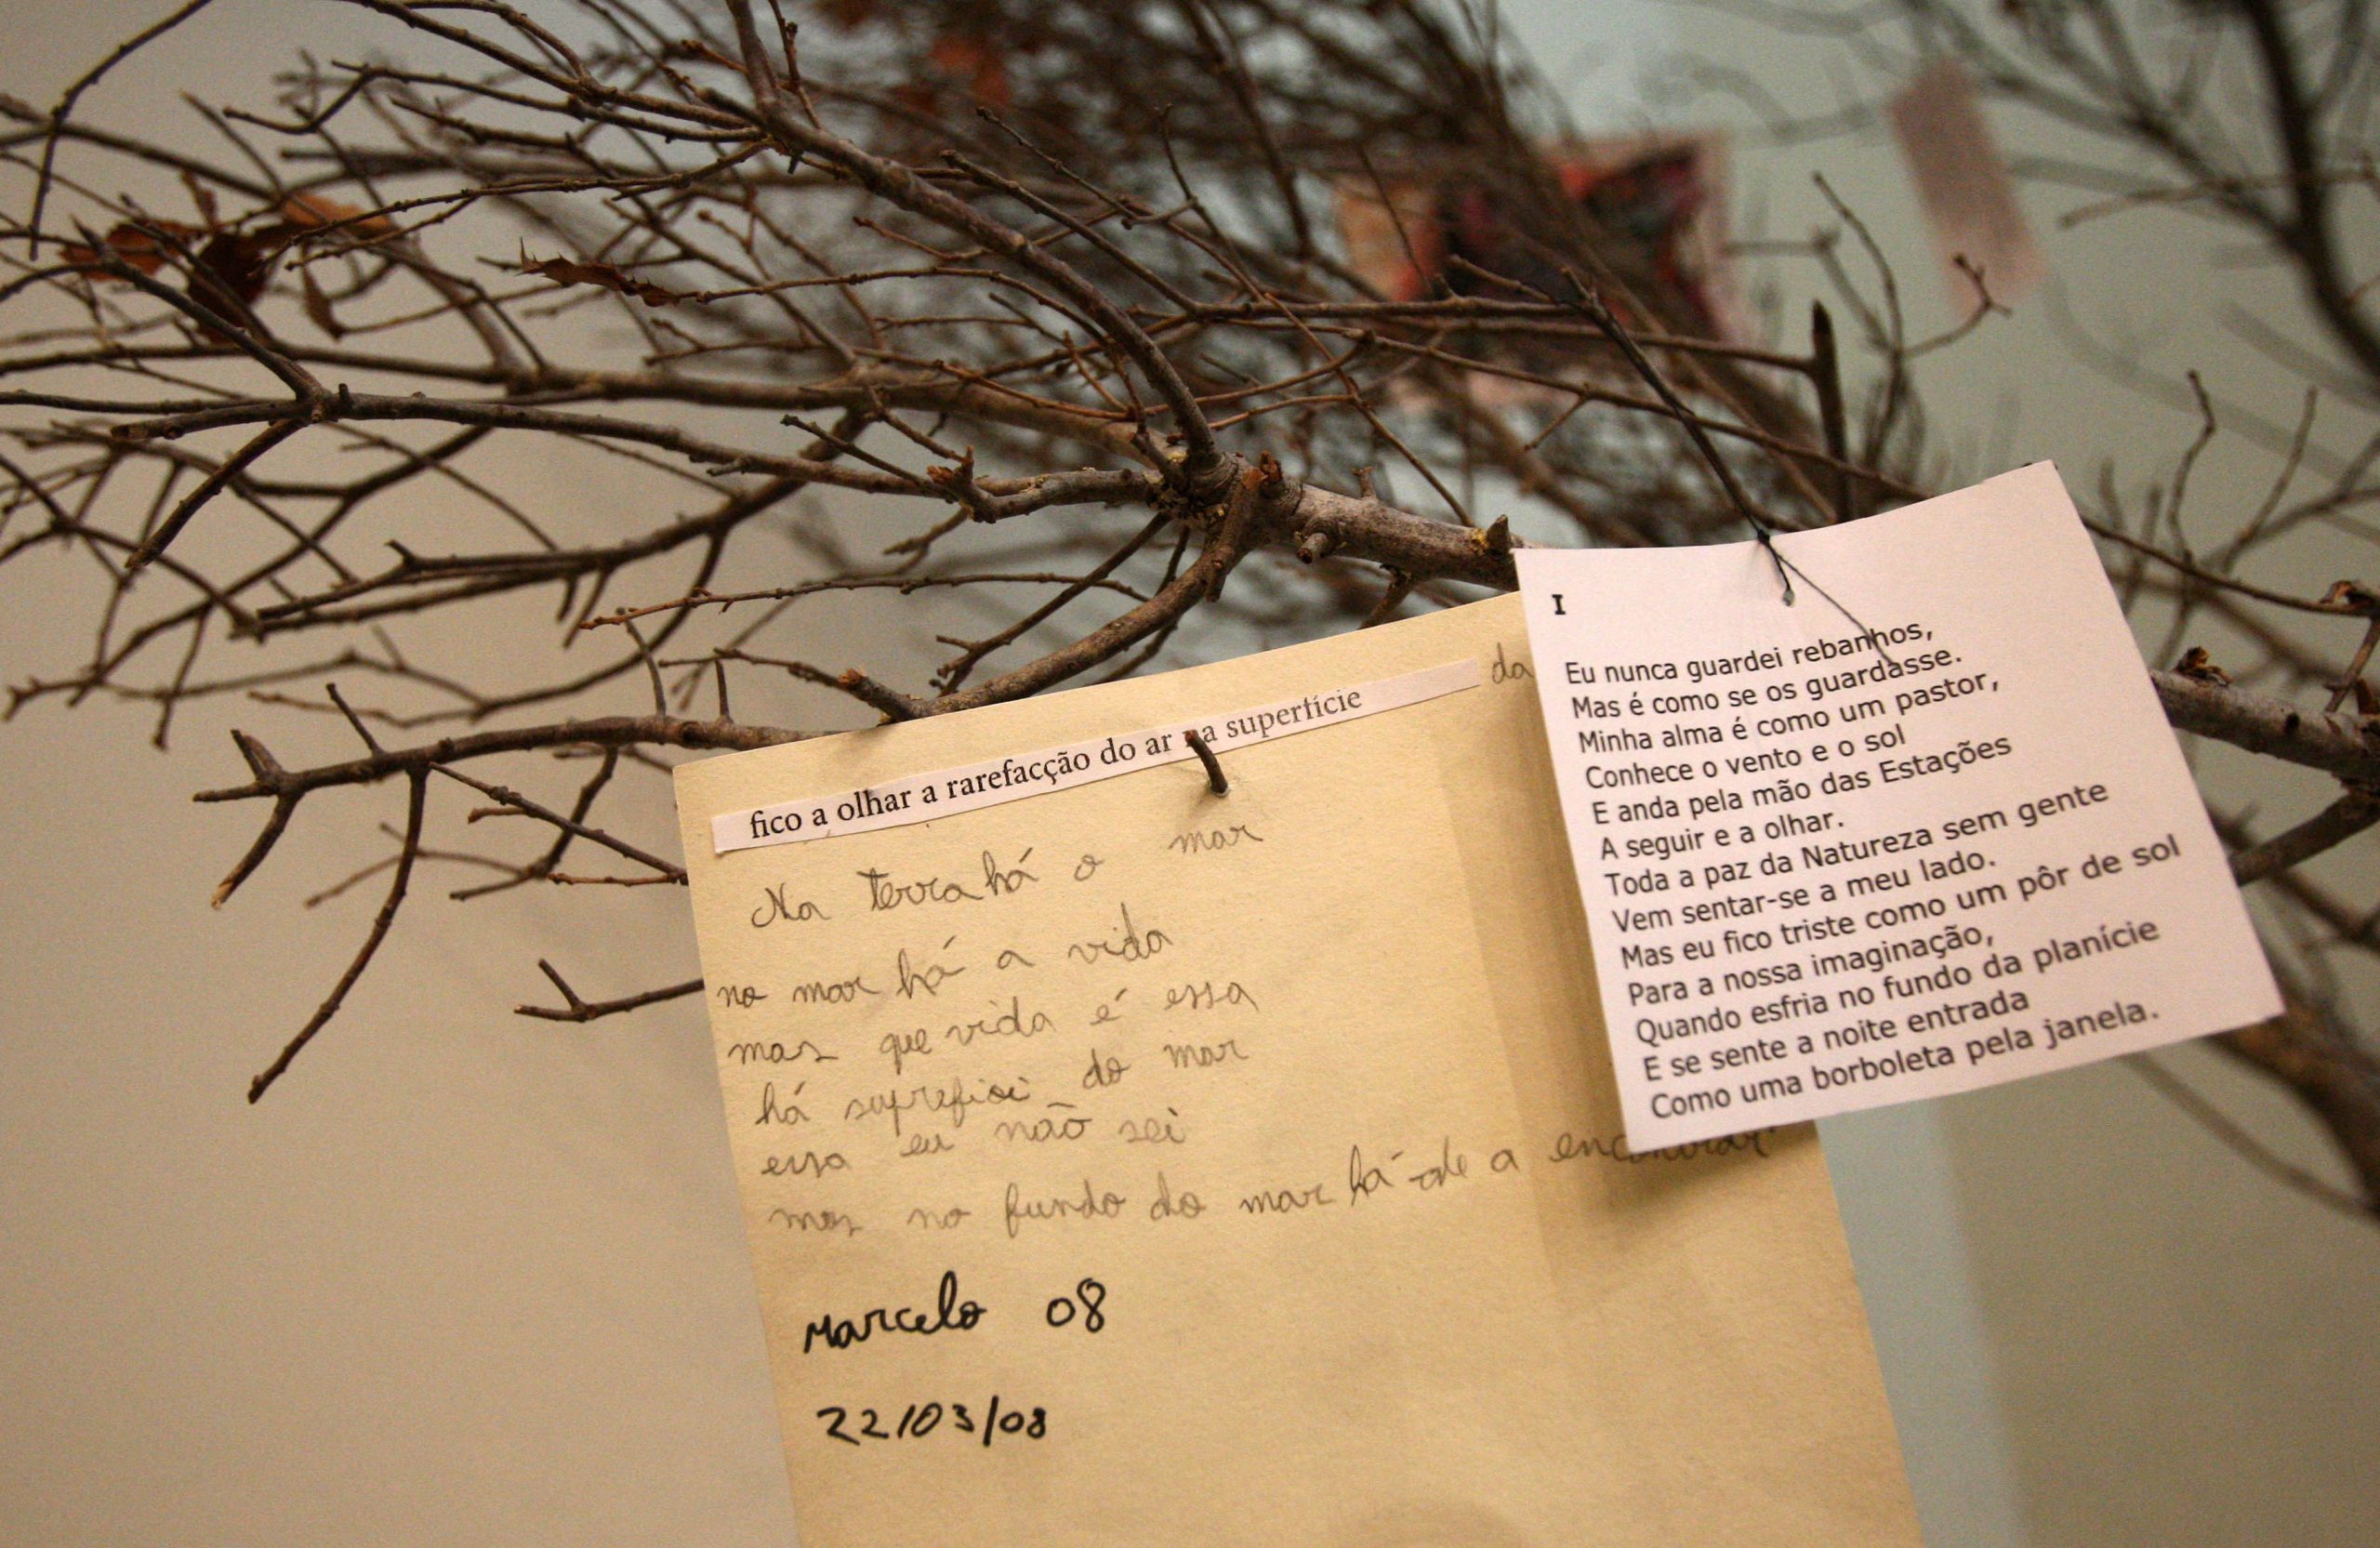 fico a olhar a rarefacção do ar na superfície da
Na terra há o mar
no mar há a vida
mas que vida é essa
há suprefici do mar
essa eu não sei
mas no fundo do mar há-de a encontrar
marcelo 08
22/03/08
I
Eu nunca guardei rebanhos,
Mas é como se os guardasse.
Minha alma é como um pastor,
Conhece o vento e o sol
E anda pela mão das Estações
A seguir e a olhar.
Toda a paz da Natureza sem gente
Vem sentar-se a meu lado.
Mas eu fico triste como um pôr de sol
Para a nossa imaginação,
Quando esfria no fundo da planície
E se sente a noite entrada
Como uma borboleta pela janela.